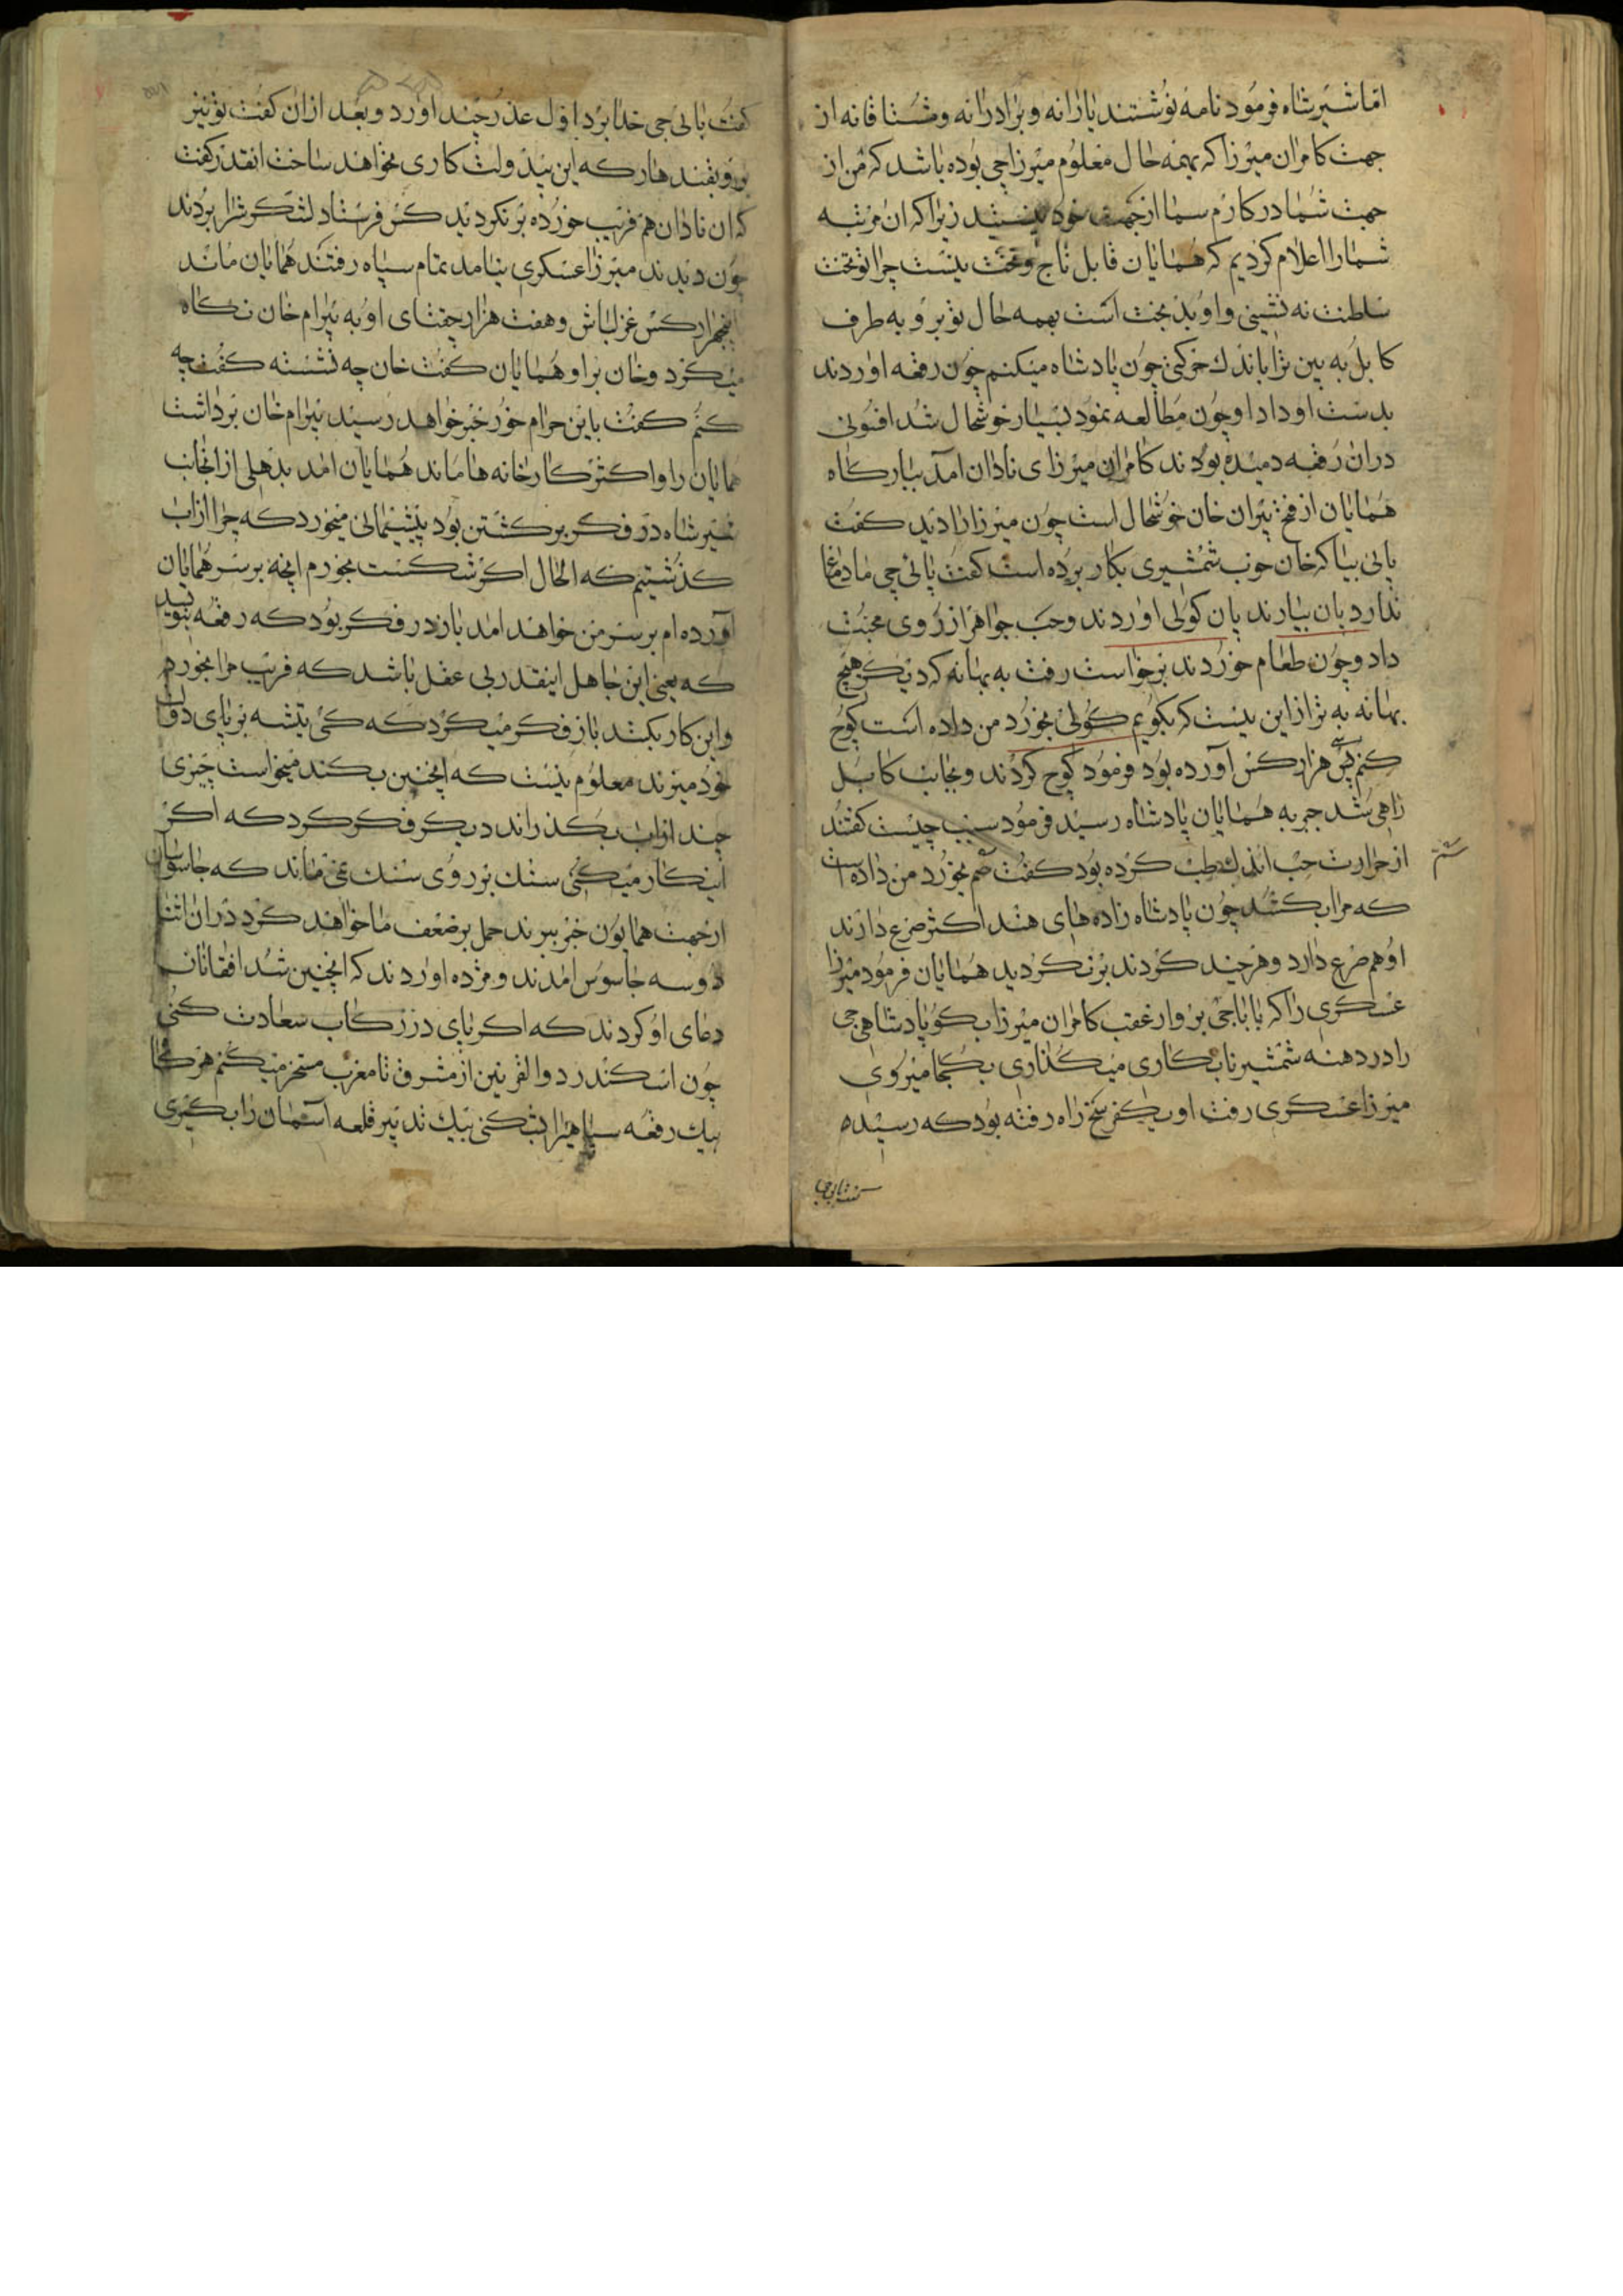 اما شیر شاه فرمود نامه نوشتند یارانه و برادرانه و مشتاقانه از
جهت کامران میرزا که بهمه حال معلوم میرزاجی بوده باشد که من از
جهت شما در کارم سما از جهت خود نیستید زیرا که ان مرتبه
شما را اعلام کردیم که همایان قابل تاج و تخت نیست چرا تو بتخت
سلطنت نه نشینی و او بد بخت است بهمه حال تو برو به طرف
کابل به بین ترا باندك خوکنی چون پادشاه میکنم چون رقعه اوردند
بدست او داد او چون مطالعه نمود بسیار خوشحال شد افسونی
دران رقعه دمیده بودند کامران میرزای نادان آمد ببارکاه
همایان از فتح بیران خان خوشحال است چون میرزا را دید کفت
بیا که خان خوب شمشیری بکار برده است کفت پائی جی ما دماغ
ندارد پان بیارند پان کولی اوردند وحب جواهر از روی محبت
داد و چون طعام خوردند برخواست رفت به بهانه که دیکر هیچ
بهانه به تر از این نیست که بکویم کولی بخورد من داده است کوچ
کنم سی هزار کس آورده بود فرمود کوچ کردند و بجانب کابل
راهی شد خبر به همایان پادشاه رسید فرمود سبب چیست کفتند
از حرارت حب اندك طب کرده بود کفت سم بخورد من داده است
سم
که مرا بکشد چون پادشاه زاده های هند اکثر صرع دارند
او هم صرع دارد و هر چند کردند برنکردید همایان فرمود میرزا
عسکری را که باباجی برو از عقب کامران میرزا بکو پادشاهی جی
را در دهنه شمشیر نابکاری میکذاری بکجا میروی
میرزا عسکری رفت او یکفرسخ راه رفته بود که رسیده
کفت بائی جی
کفت بائی جی خدا برد اول عذر چند اورد و بعد ازان کفت تو نیز
برو بقندهار که این بیدولت کاری نخواهد ساخت انقدر کفت
که ان نادان هم فریب خورده برنکردید کس فرستاد لشکرش را بردند
چون دیدند میرزا عسکری نیامد تمام سپاه رفتند همایان ماند
پنجهزار کس غزلباش و هفت هزار جغتای او به بیرام خان نکاه
میکرد و خان بر او همایان کفت خان چه نشسته کفت چه
کنم کفت باین حرام خور خبر خواهد رسید بیرام خان برداشت
همایان را و اکثر کارخانه ها ماند همایان امد بدهلی از انجانب
شیر شاه در فکر برکشتن بود پشیمانی میخورد که چرا از اب
کذشتیم که الحال اکر شکست بخورم انچه بر سر همایان
آورده ام بر سر من خواهد امد باز در فکر بود که رقعه بنوید
که یعنی این جاهل اینقدر بی عقل باشد که فریب مرا بخورد
و این کار بکند باز فکر میکرد که کسی تیشه بر پای دولت
خود میزند معلوم نیست که اینچنین بکند میخواست چیزی
چند از اب بکذراند دیکر فکر کرد که اکر
اینکار میکنی سنك بر روی سنك نمی ماند که جاسوسان
از جهت همایون خبر ببرند حمل بر ضعف ما خواهند کرد دران اثنا
دو سه جاسوس امدند و مژده اوردند که اینچنین شد افقانان
دعای او کردند که اکر پای در رکاب سعادت کنی
چون اسکندر ذوالقرنین از مشرق تا مغرب مسخر میکنم هر کجا
بیك رقعه سپاهیرا کنی بیك تدبیر قلعه آسمان را بکیری